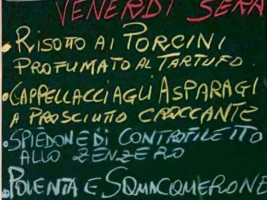 VENERDÌ SERA
• RISOTTO AI PORCINI
PROFUMATO AL TARTUFO
• CAPPELLACCI AGLI ASPARAGI
A PROSCIUTTO CROCCANTE
• SPIEDONE DI CONTROFILETTO
ALLO ZENZERO
• POLENTA E SQUACQUERONE